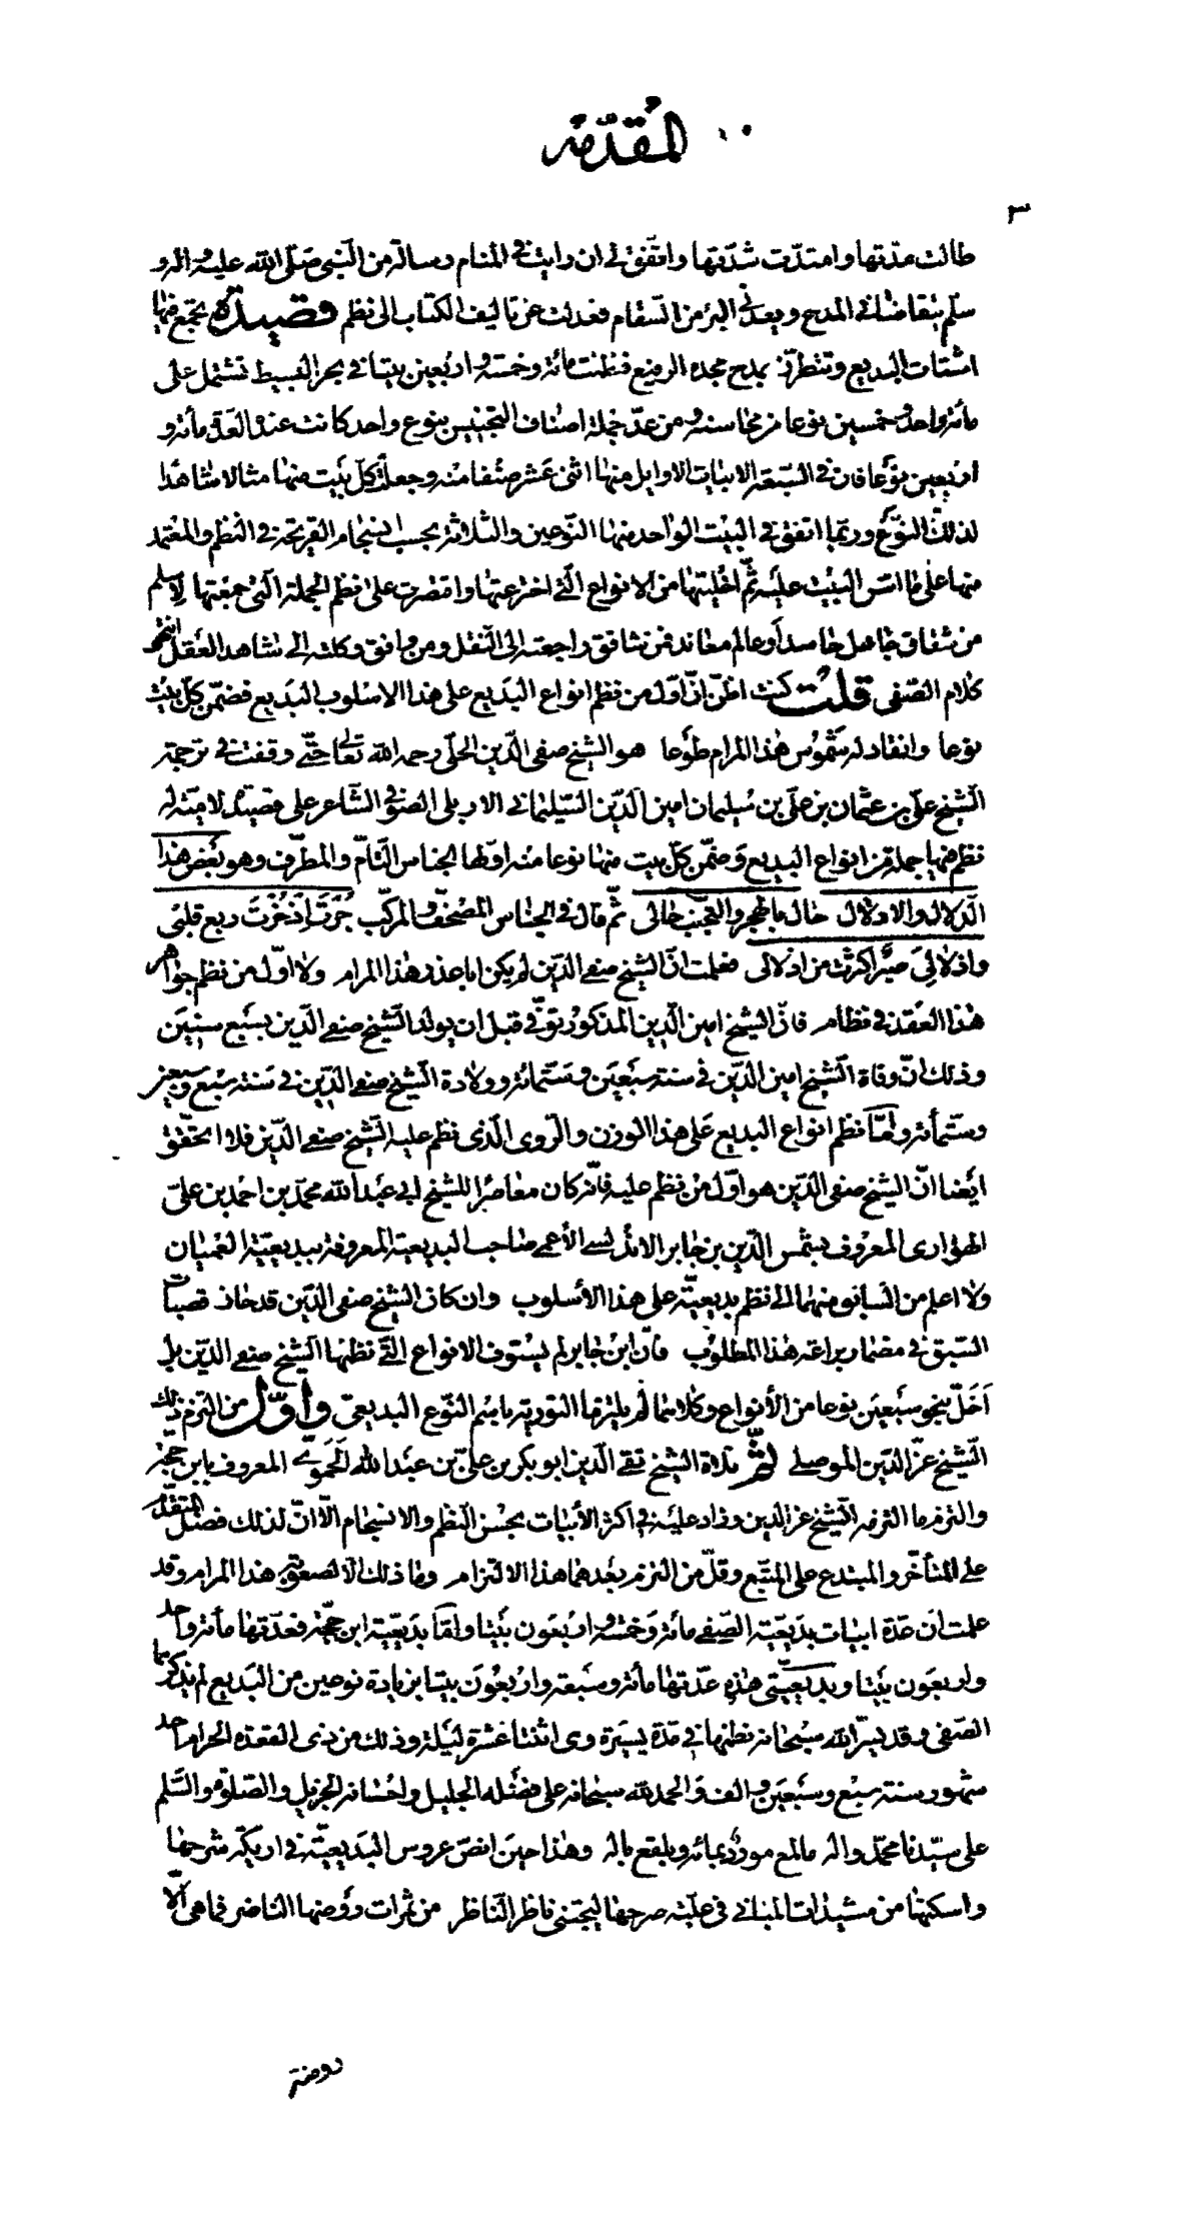 المقدمة
٣
طالت مدّتها وامتدّت شدّتها واتّفق لى ان رايت فى المنام رسالة من النّبى صلّى الله عليه واله و
سلّم يتقاضانى المدح ويعدنى البرء من السّقام فعدلت عن تاليف الكتاب الى نظم قصيدة تجمع فيها
اشتات البديع وتتطرّز بمدح مجده الرفيع فنظمت مائة وخمسة واربعين بيتا فى بحر البسيط تشتمل على
مائة واحد وخمسين نوعا من محاسنه ومن عدّ جملة اصناف التجنيس بنوع واحد كانت عنده العدّة مائة و
اربعين نوعا فان فى السبعة الابيات الاوايل منها اثنى عشر صنفا منه وجعلت كلّ بيت منها مثالا شاهدا
لذلك النّوع وربما اتفق فى البيت الواحد منها النّوعين والثّلاثة بحسب انسجام القريحة فى النظم والمعتمد
منها على ما اسّس البيت عليه ثمّ اخليتها من الانواع الّتى اخترعتها واقتصرت على نظم الجملة الّتى جمعتها لاسلم
من شقاق جاهل حاسد او عالم معاند فمن شاقق راجعته الى النّقل ومن وافق وكلته الى شاهد العقل انتهى
كلام الصّفى قلت كنت اظنّ انّ اوّل من نظم انواع البديع على هذا الاسلوب البديع فضمّن كلّ بيت
نوعا وانقاد له شموس هذا المرام طوعا هو الشيخ صفى الدّين الحلّى رحمه الله تعالى حتّى وقفت فى ترجمة
الشيخ علىّ بن عثمان بن على بن سليمان امين الدّين السّليمانى الاربلى الصّوفى الشّاعر على قصيدة لاميّة له
نظم فيها جملة من انواع البديع وضمّن كلّ بيت منها نوعا منه اوّلها الجناس التّامّ والمطرّف وهو بعض هذا
الدّلال والادلال حال بالهجر والتّجنّب حالى ثمّ قال فى الجناس المصحّف والمركّب جُرْتَ اذ حُزْتَ ربع قلبى
واذلالى صبر اكثرت من اذلالى فعلمت انّ الشيخ صفى الدّين لم يكن ابا عذر هذا المرام ولا اوّل من نظم جواهر
هذا العقد فى نظام فانّ الشيخ امين الدّين المذكور توفّى قبل ان يولد الشّيخ صفى الدّين بسبع سنين
وذلك انّ وفاة الشّيخ امين الدّين فى سنة سبعين وستّمائة وولادة الشّيخ صفى الدّين فى سنة سبع وسبعين
وستّمائة وامّا نظم انواع البديع على هذا الوزن والرّوى الّذى نظم عليه الشّيخ صفى الدّين فلا اتحقّق
ايضا انّ الشيخ صفى الدّين هو اوّل من نظم عليه فانّه كان معاصرا للشيخ ابى عبد الله محمّد بن احمد بن علىّ
الهوّارى المعروف بشمس الدّين بن جابر الاندلسى الأعمى صاحب البديعية المعروفة ببديعيّة العميان
ولا اعلم من السّابق منهما الى نظم بديعيّة على هذا الأسلوب وان كان الشيخ صفى الدّين قد حاز قصبات
السّبق فى مضمار براعة هذا المطلوب فانّ ابن جابر لم يستوف الانواع الّتى نظمها الشيخ صفى الدّين بل
اخلّ بنحو سبعين نوعا من الأنواع وكلاهما لم يلتزما التورية باسم النّوع البديعى واوّل من التزم ذلك
الشّيخ عزّ الدّين الموصلى ثمّ تلاه الشيخ تقى الدّين ابو بكر بن علىّ بن عبد الله الحموىّ المعروف بابن حجّة
والتزم ما التزمه الشّيخ عزّ الدين وزاد عليه فى اكثر الأبيات بحسن النّظم والانسجام الّا انّ لذلك فضل المتقدّم
على المتأخّر والمبتدع على المتّبع وقلّ من التزم بعدهما هذا الالتزام وما ذلك الّا لصعوبة هذا المرام وقد
علمت انّ عدّة ابيات بديعيّة الصّفى مائة وخمسة واربعون بيتا وامّا بديعيّة ابن حجّة فعدّتها مائة واحد
واربعون بيتا وبديعيّتى هذه عدّتها مائة وسبعة واربعون بيتا بزيادة نوعين من البديع لم يذكرهما
الصّفى وقد يسّر الله سبحانه نظمها فى مدّة يسيرة وهى اثنتا عشرة ليلة وذلك من ذى القعدة الحرام احد
شهور سنة سبع وسبعين والف والحمد لله سبحانه على فضله الجليل واحسانه الجزيل والصّلوة والسّلم
على سيّدنا محمّد واله ما لمع مورد بمائه ويلقع باله وهذا حين انصّ عروس البديعيّة فى اريكة شرحها
واسكنها من مشيدات المبانى فى عليّة صرحها ليجتنى ناظر النّاظر من ثمرات روضها النّاضر فما هى الّا
روضة